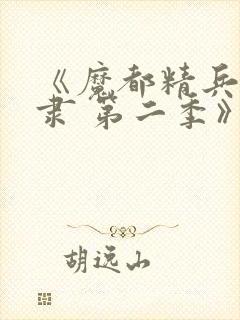 《魔都精兵
隶 第二季》
胡远山